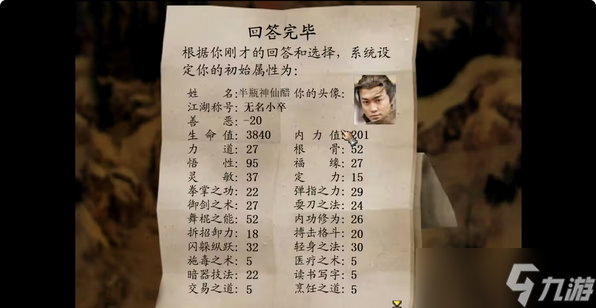 回答完毕
根据你刚才的回答和选择，系统设
定你的初始属性为：
姓 名：半瓶神仙醋 你的头像：
江湖称号：无名小卒
善 恶：-20
生 命 值：3840 内 力 值：201
力 道：27 根 骨：52
悟 性：95 福 缘：27
灵 敏：37 定 力：15
拳掌之功：22 弹指之力：29
御剑之术：27 耍刀之法：24
舞棍之能：52 内功修为：26
拆招卸力：18 搏击格斗：20
闪躲纵跃：32 轻身之法：30
施毒之术：5 医疗之术：5
暗器技法：22 读书写字：5
交易之道：5 烹饪之道：5
九游